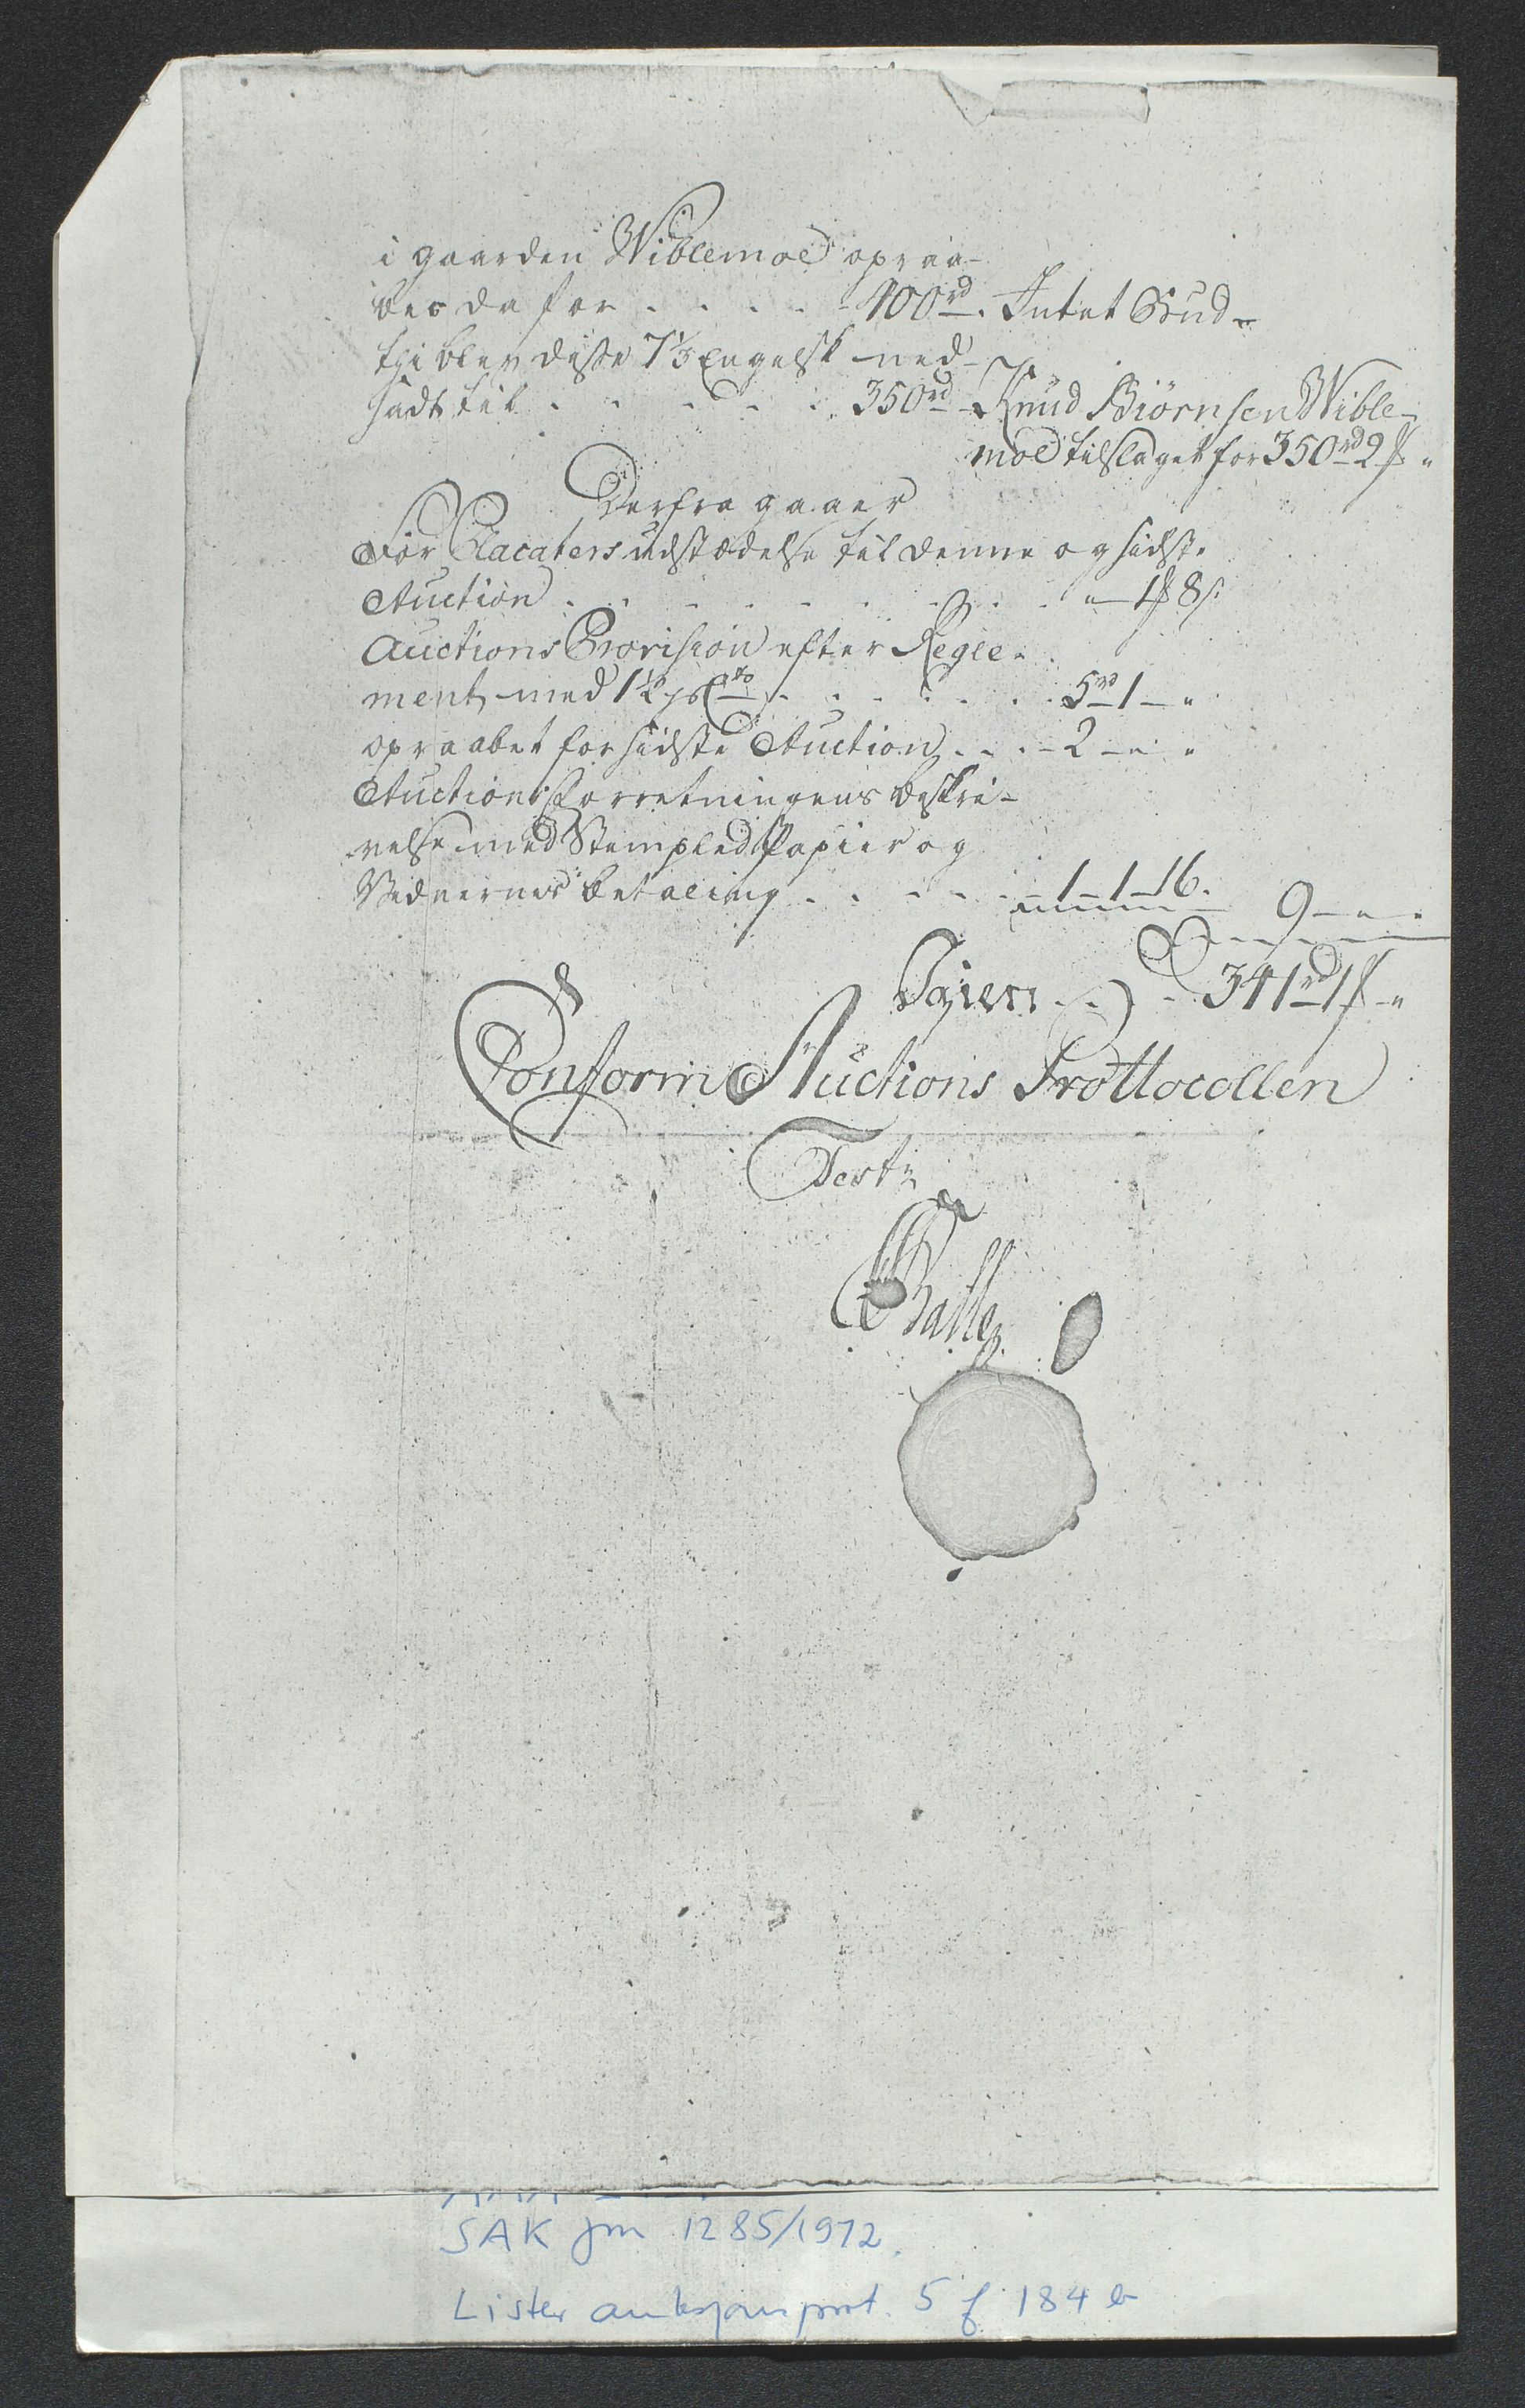 i gaarden Wiblemoe opraa-
bes da for . . . . 400rd. Intet Bud-
thi blev disse 7 1/3 Engelsk ned-
sadt til . . . . . . 350rd - Knud Biørnsen Wible-
moe tilslaget for 350rd 2 f "
Derfra gaaer
For Placaters udstædelse til denne og sidste
Auction . . . . . . . . . " - 1 f 8 s.
Auctions Provision efter Regle-
ment med 1 1/2 p Cto . . . . . . 5rd 1 - "
opraabet for sidste Auction . . . - 2 - " - "
Auctions Forretningens beskri-
velse med Stempled Papiir og
Vidnernes betaling . . . . . 1 - 1 - 16.
9 - " - "
Igien . . . 341rd 1 f - "
Conform Auctions Prottocollen
Test:
Balle
SAK jnr 1285/1972.
Lister auksjonsprot. 5 f 184 b